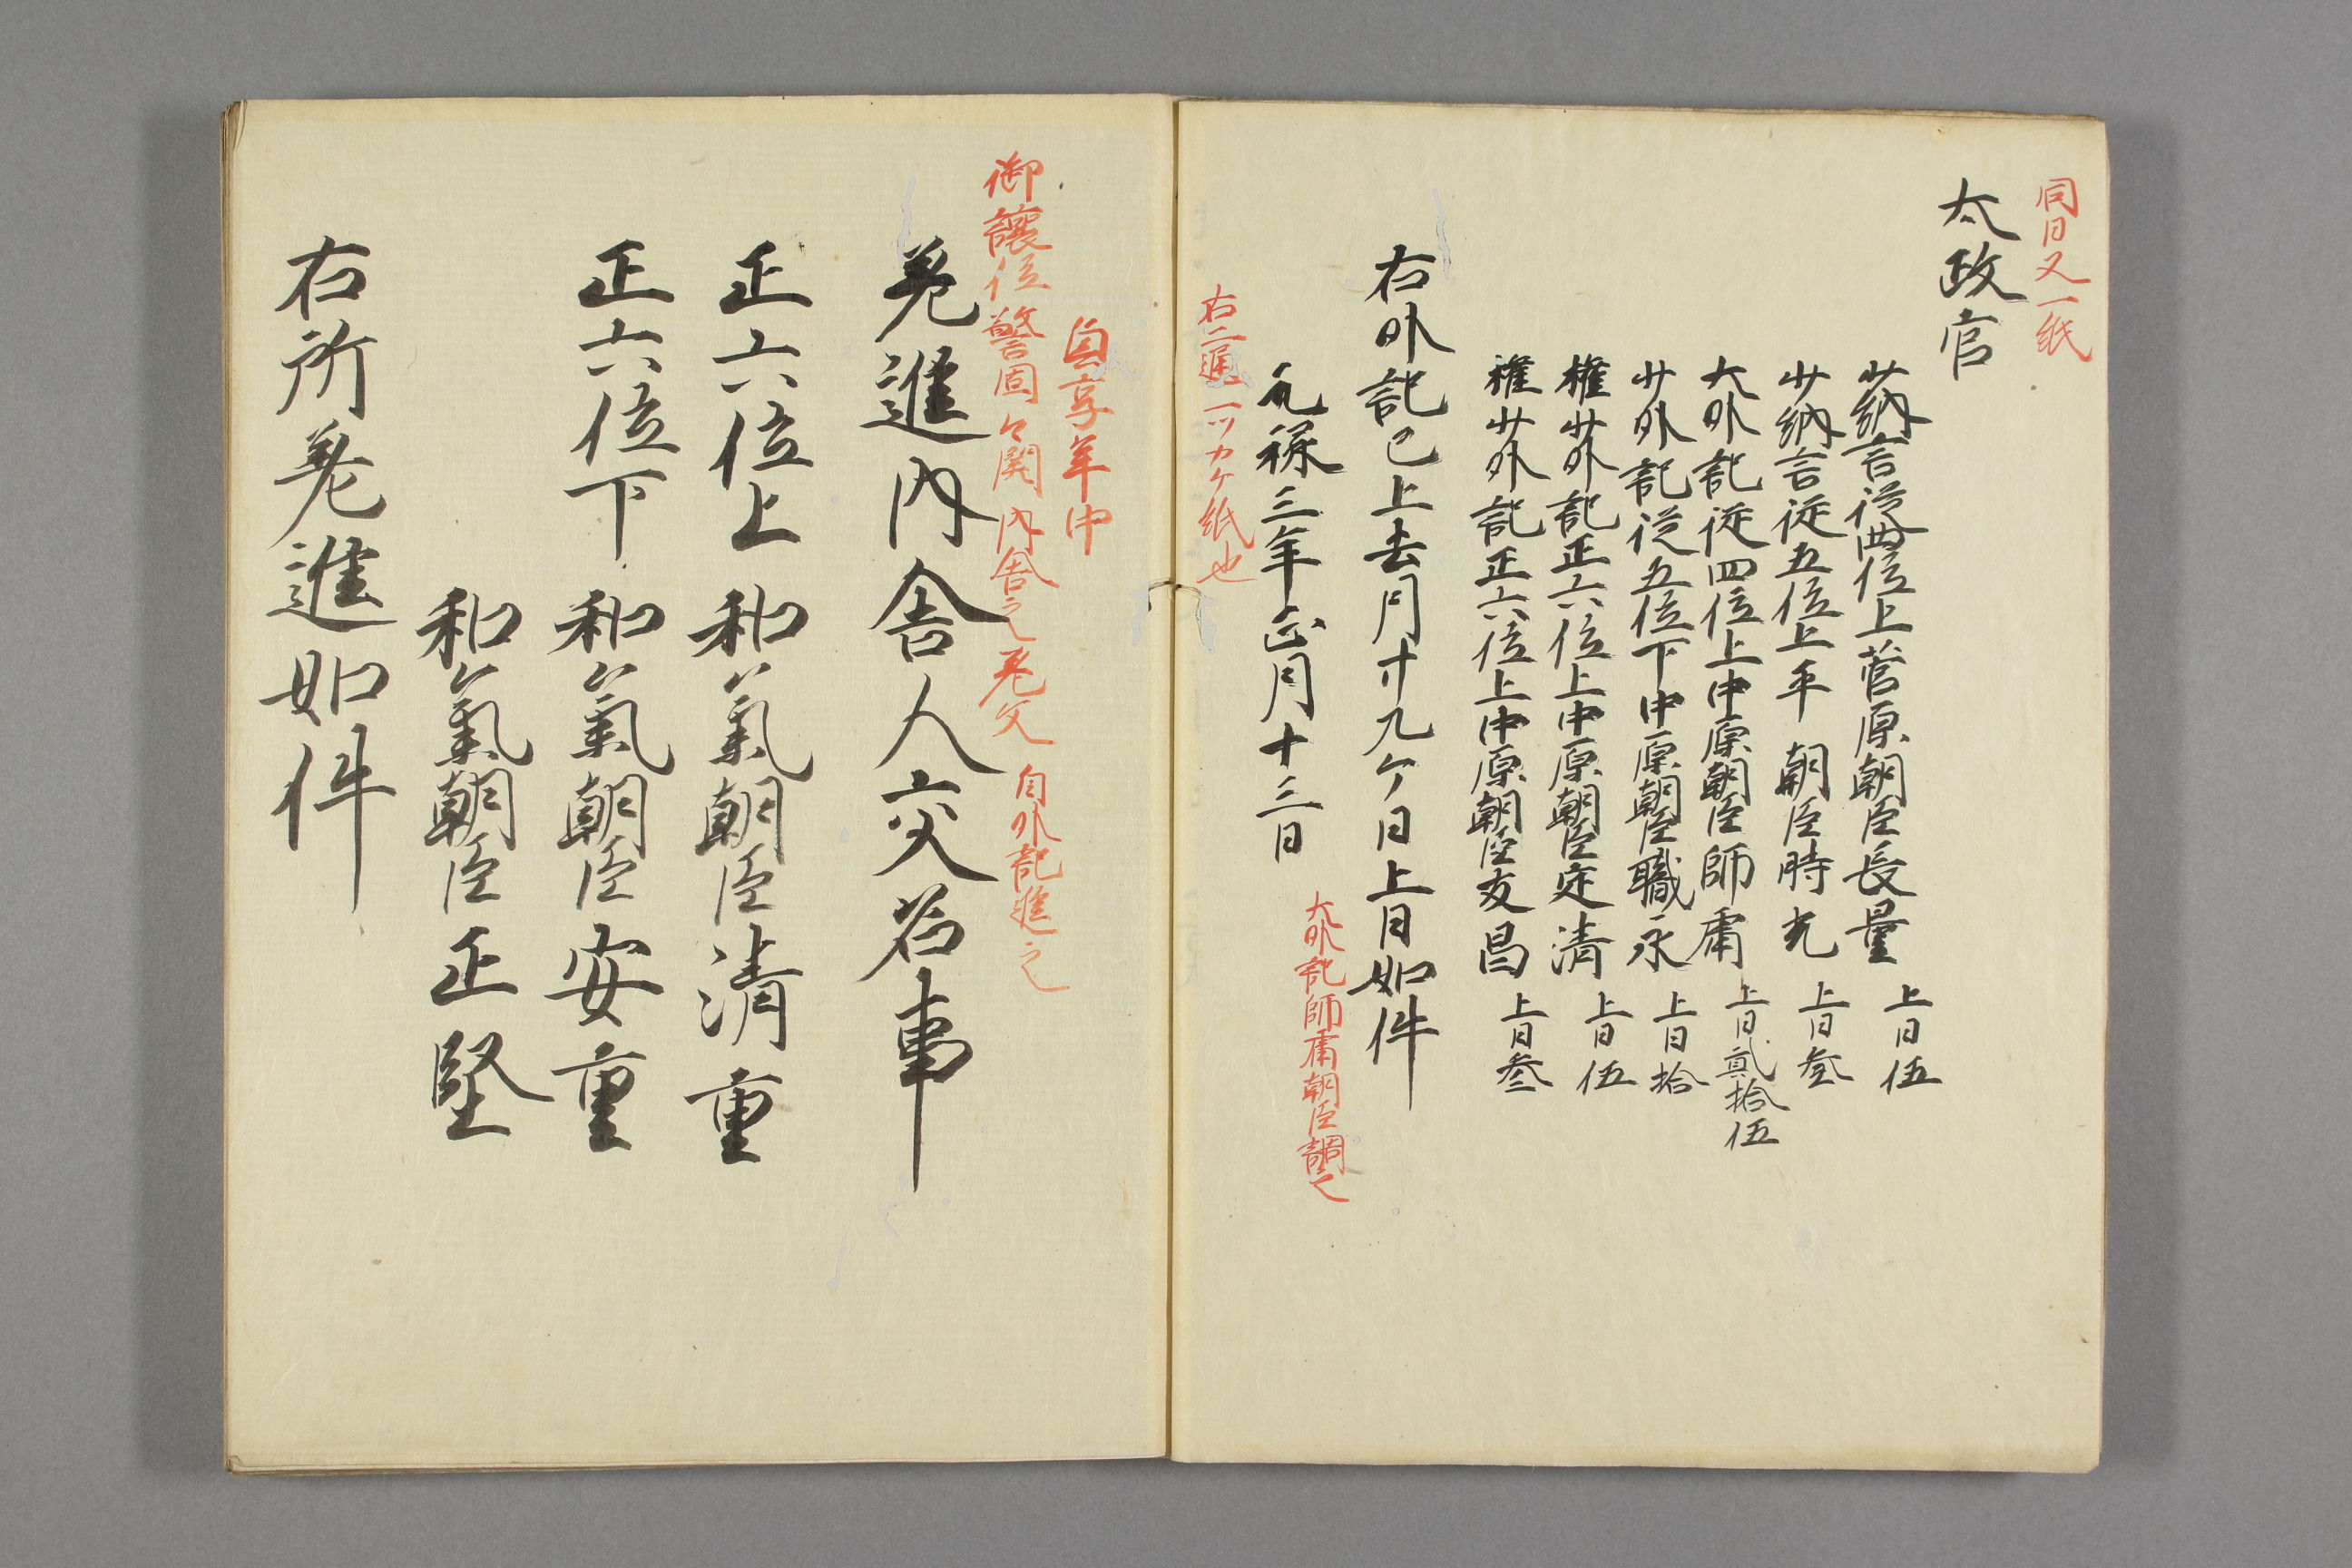 同日又一紙
太政官
少納言従四位上菅原朝臣長量 上日伍
少納言従五位上平 朝臣時光 上日叁
大外記従四位上中原朝臣師庸 上日貳拾伍
少外記従五位下中原朝臣職永 上日拾
権少外記正六位上中原朝臣定清 上日伍
権少外記正六位上中原朝臣友昌 上日叁
右外記已上去月廿九ケ日上日如件
元禄三年正月十三日
大外記師庸朝臣調之
右二通一ツカケ紙也
貞享年中
御譲位警固々関内舎之差文 自外記進之
差進内舎人交名事
正六位上 和氣朝臣清重
正六位下 和氣朝臣安重
和氣朝臣正堅
右所差進如件